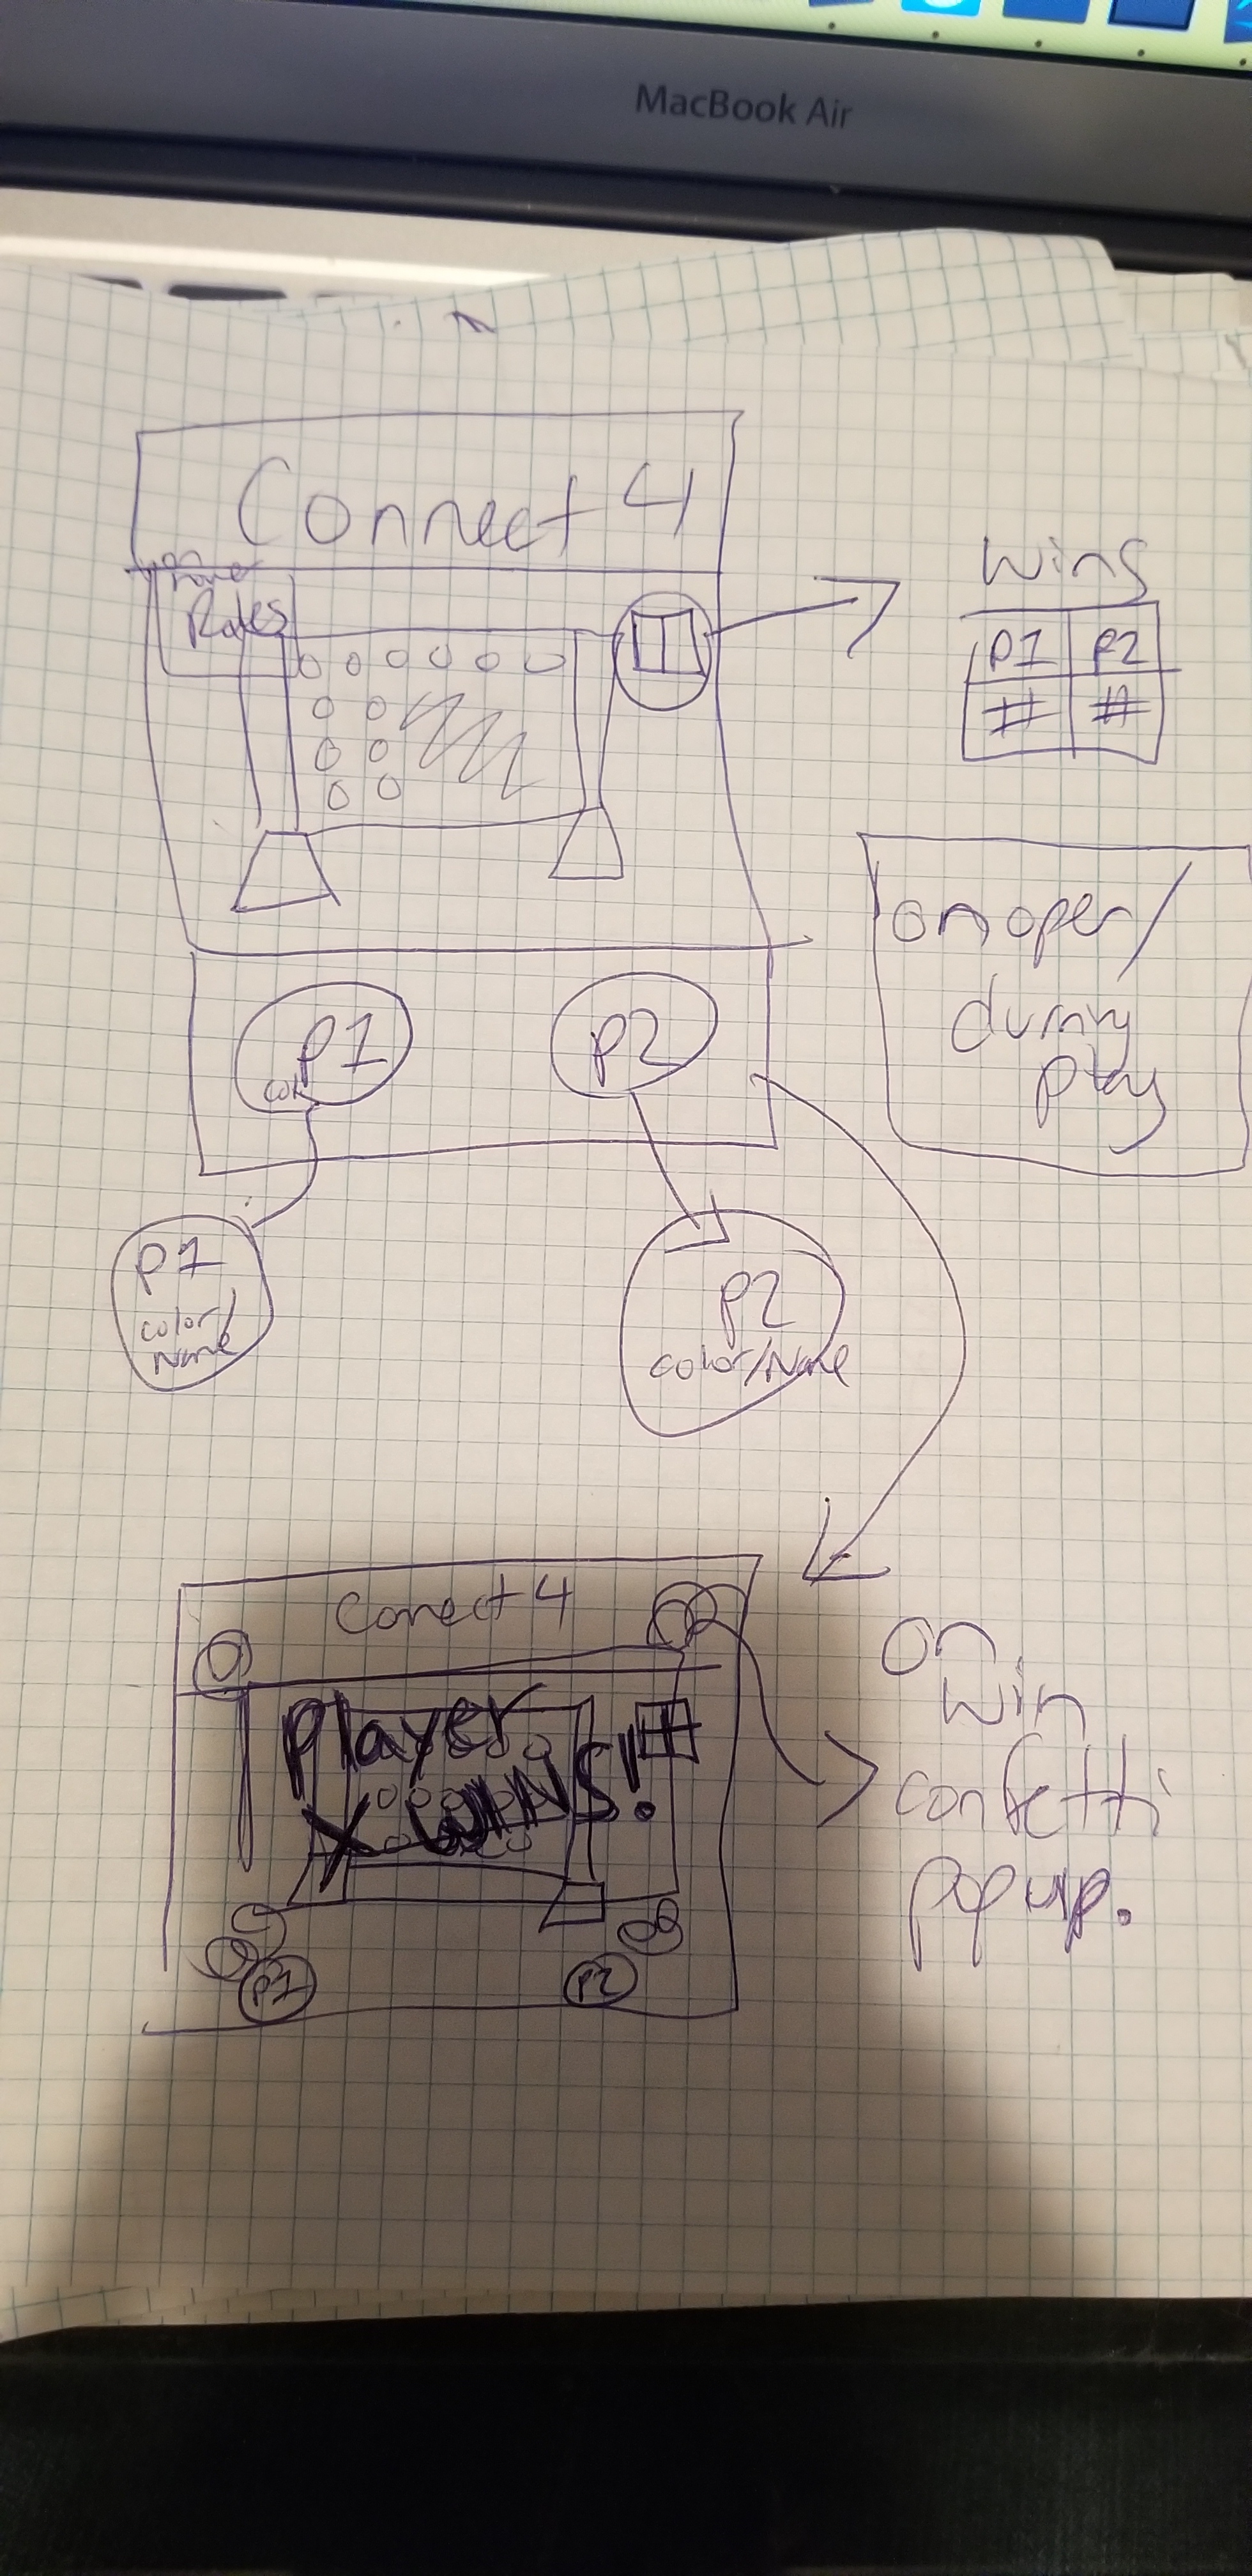 MacBook Air
Connect 4
Rules
Wins
P1 P2
# #
on open/
during
play
P1
P2
P1
color/
Name
P2
color/Name
Conect 4
Player
X WINS!
P1
P2
On
win
confetti
pop up.